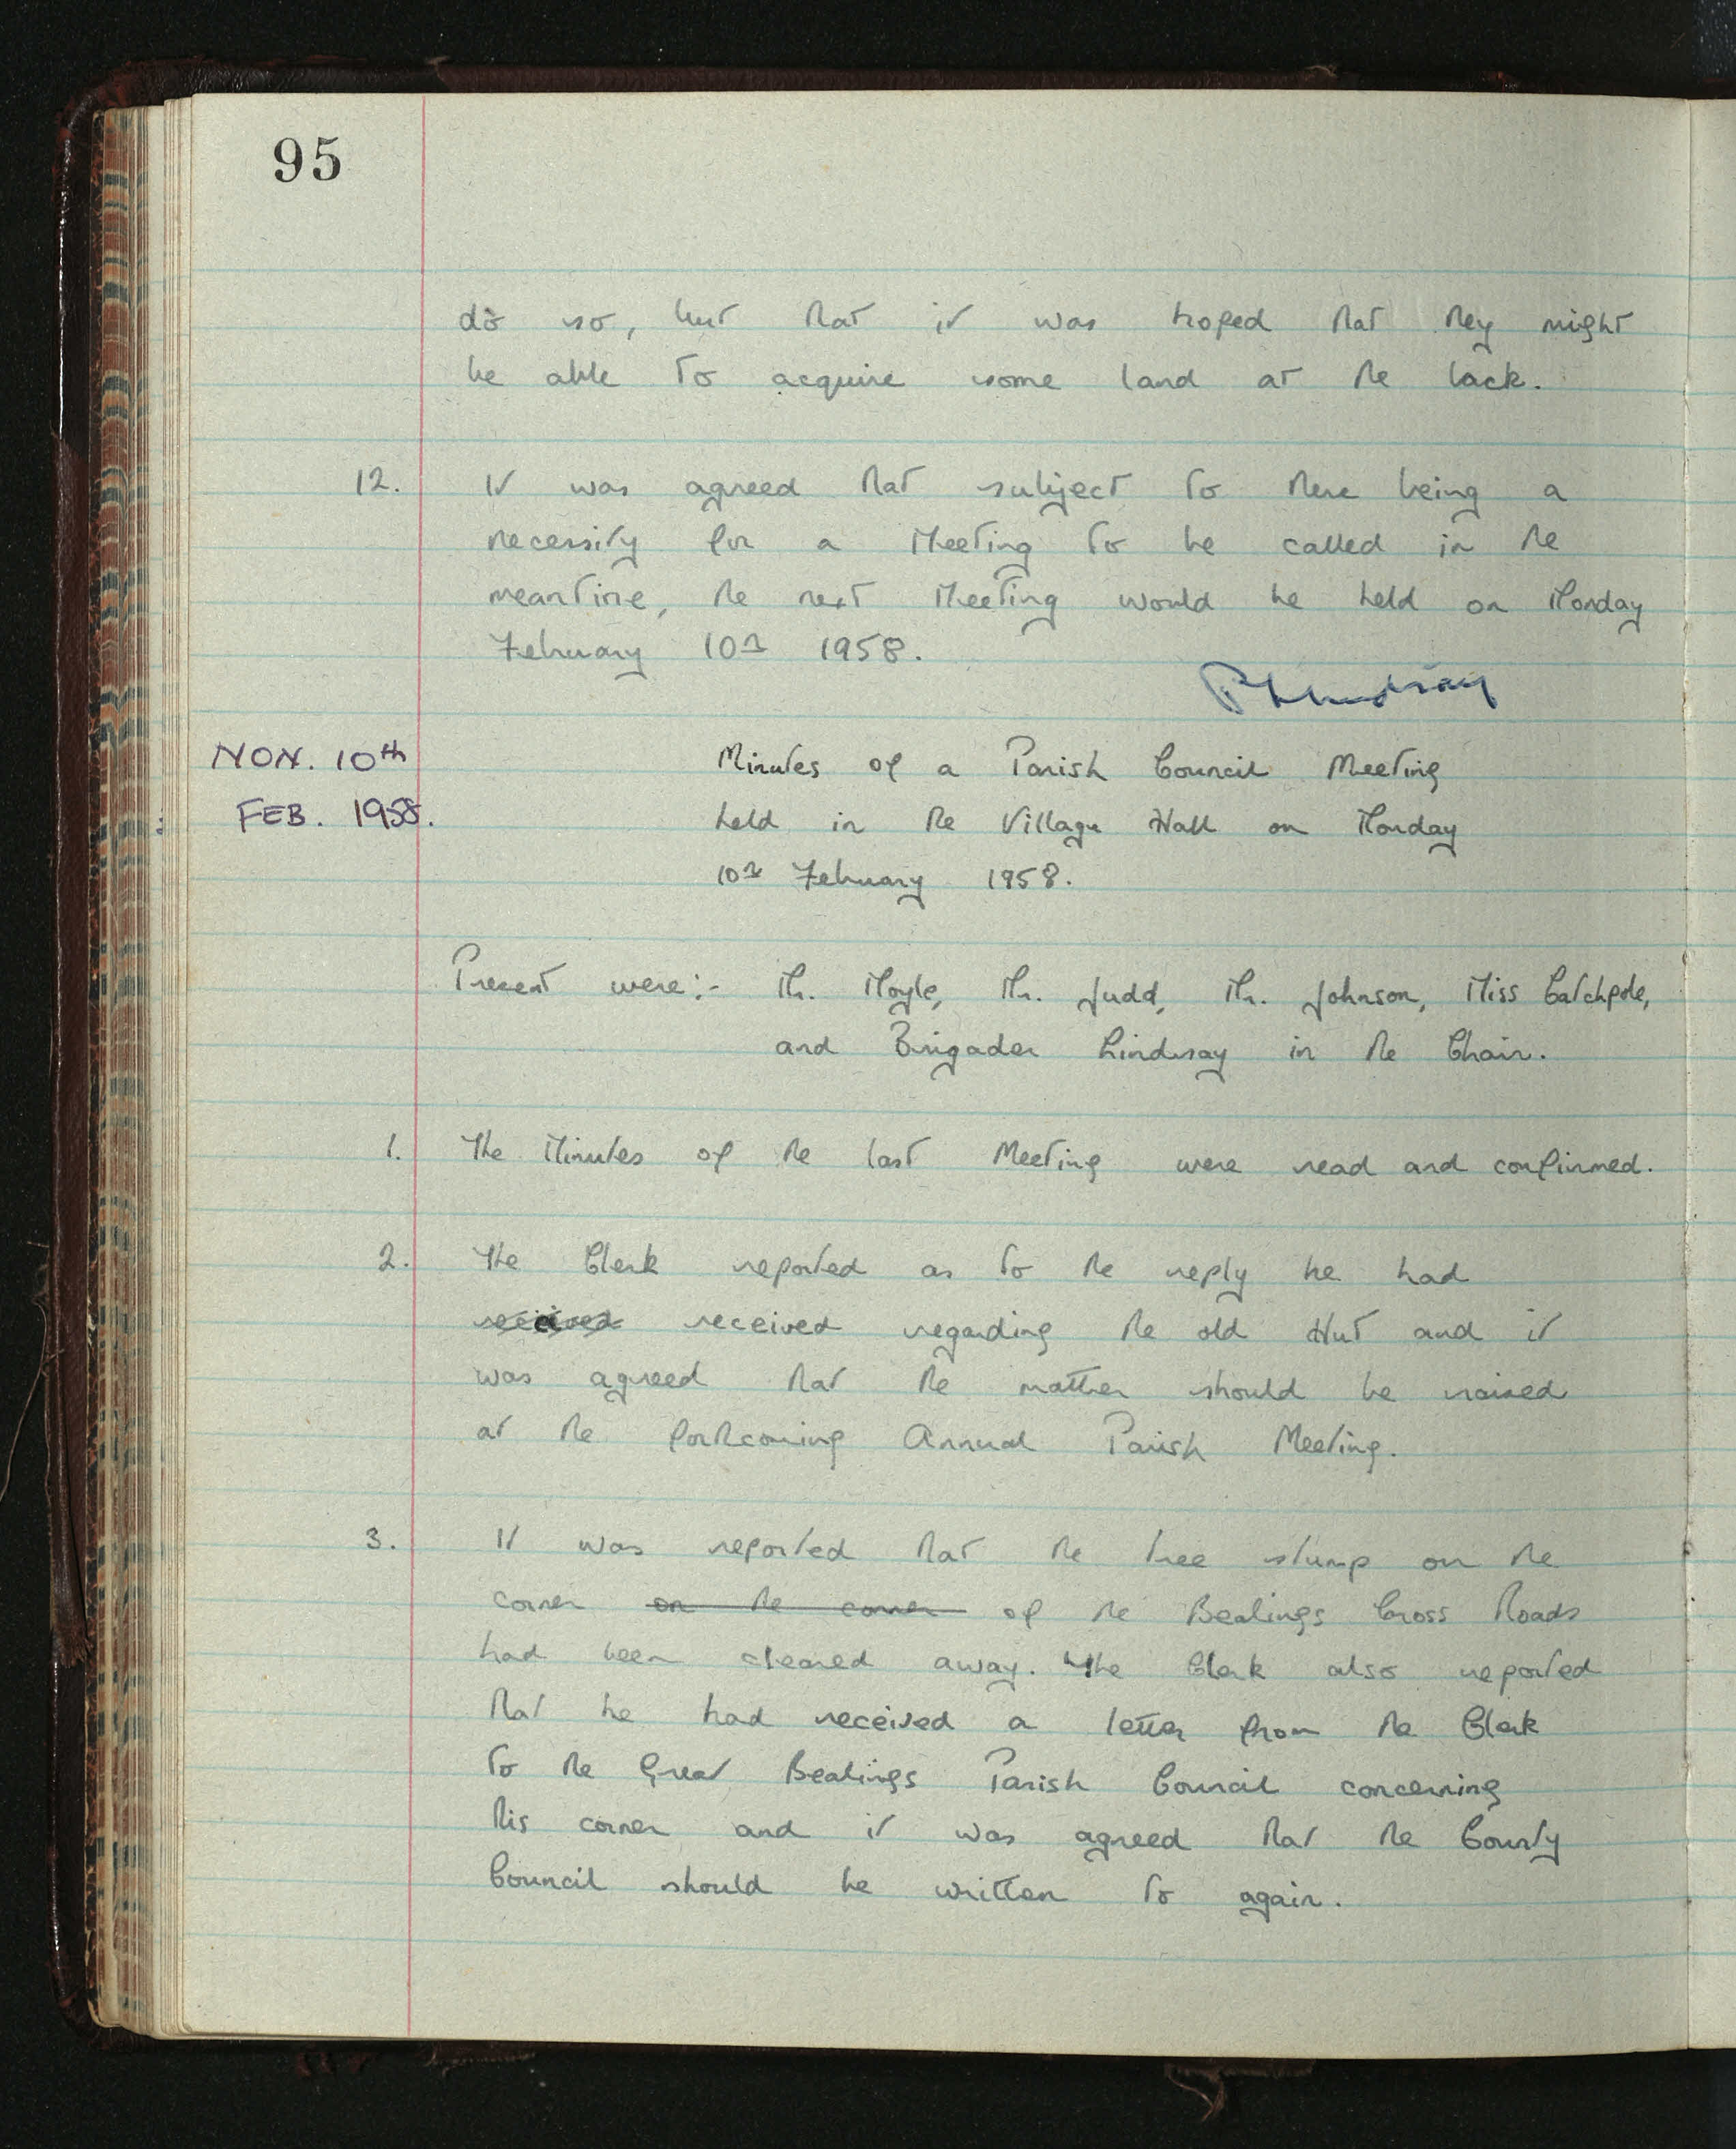 95
do so, but that it was hoped that they might
be able to acquire some land at the back.
12. It was agreed that subject to there being a
necessity for a Meeting to be called in the
meantime, the next Meeting would be held on Monday
February 10th 1958.
P Lindsay
MON. 10th
FEB. 1958.
Minutes of a Parish Council Meeting
held in the Village Hall on Monday
10th February 1958.
Present were:- Mr. Moyle, Mr. Judd, Mr. Johnson, Miss Catchpole,
and Brigader Lindsay in the Chair.
1. The Minutes of the last Meeting were read and confirmed.
2. The Clerk reported as to the reply he had
received received regarding the old Hut and it
was agreed that the matter should be raised
at the forthcoming Annual Parish Meeting.
3. It was reported that the tree stump on the
corner on the corner of the Bealings Cross Roads
had been cleared away. The Clerk also reported
that he had received a letter from the Clerk
to the Great Bealings Parish Council concerning
this corner and it was agreed that the County
Council should be written to again.